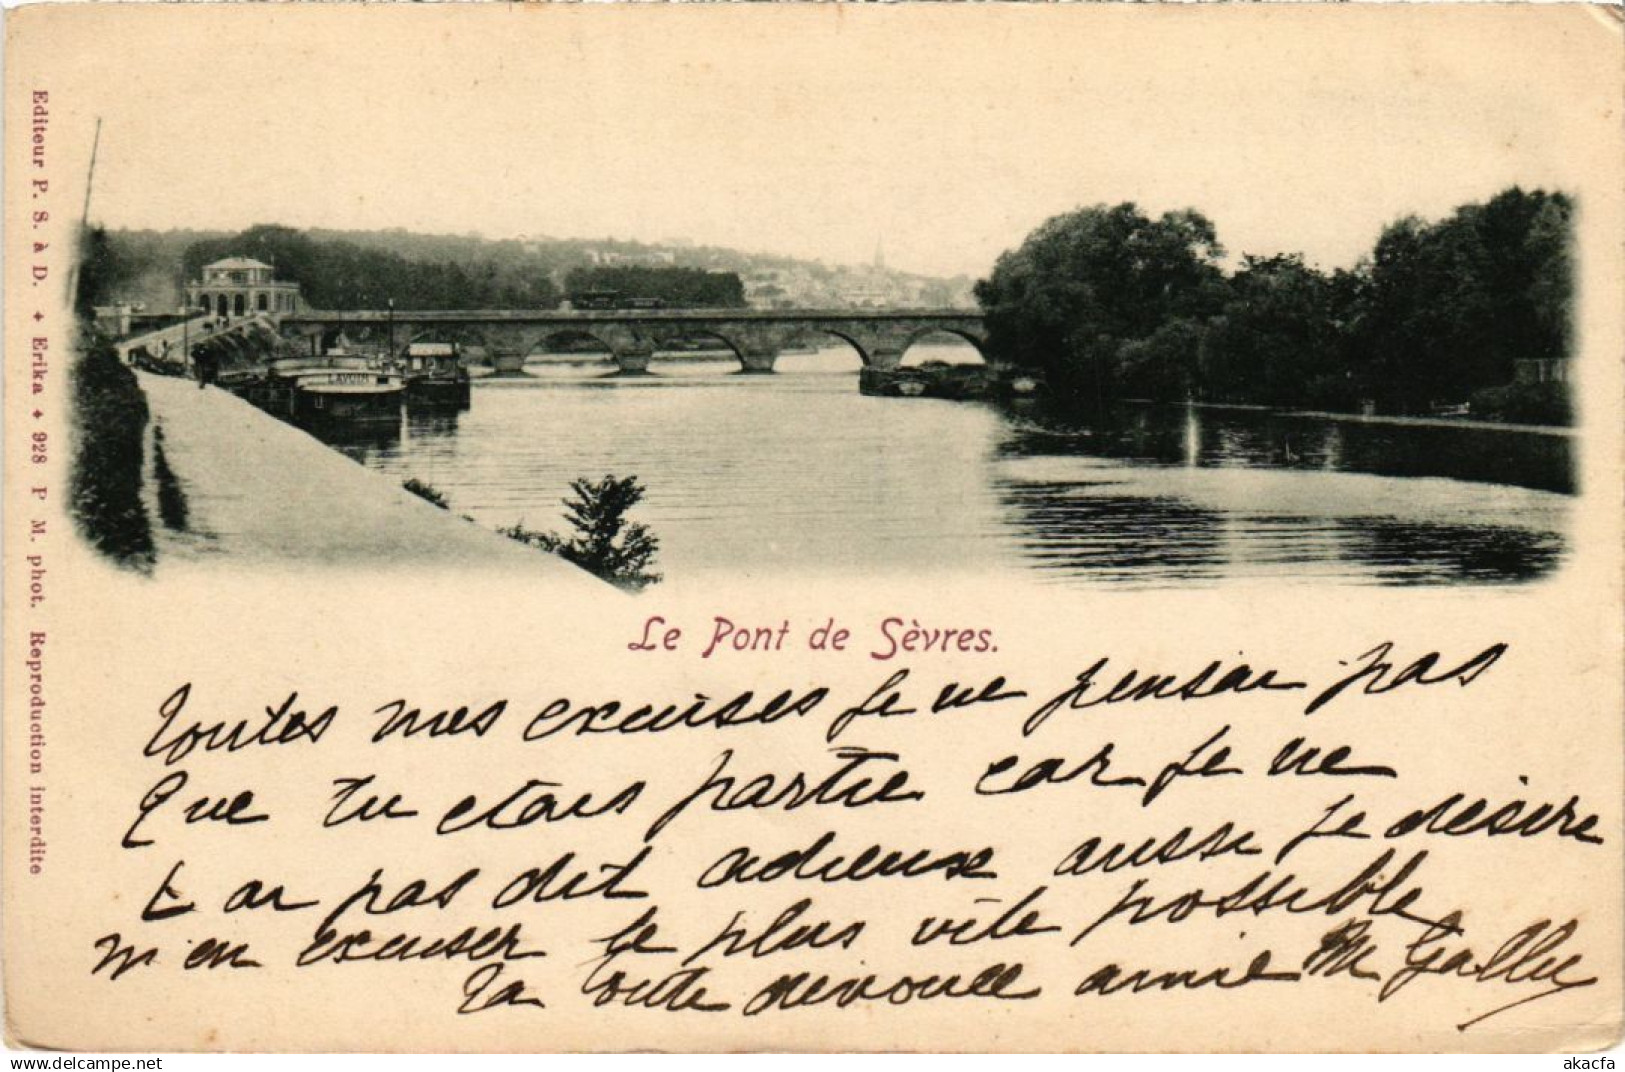 Editeur P. S. à D. ✦ Erika ✦ 928 P M. phot. Reproduction interdite
LAVOIR
Le Pont de Sèvres.
Toutes mes excuses je ne pensai pas
Que tu etais partie car je ne
t ai pas dit adieux aussi je désire
m en excuser le plus vite possible
la toute devouée amie M
www.delcampe.net
akacfa